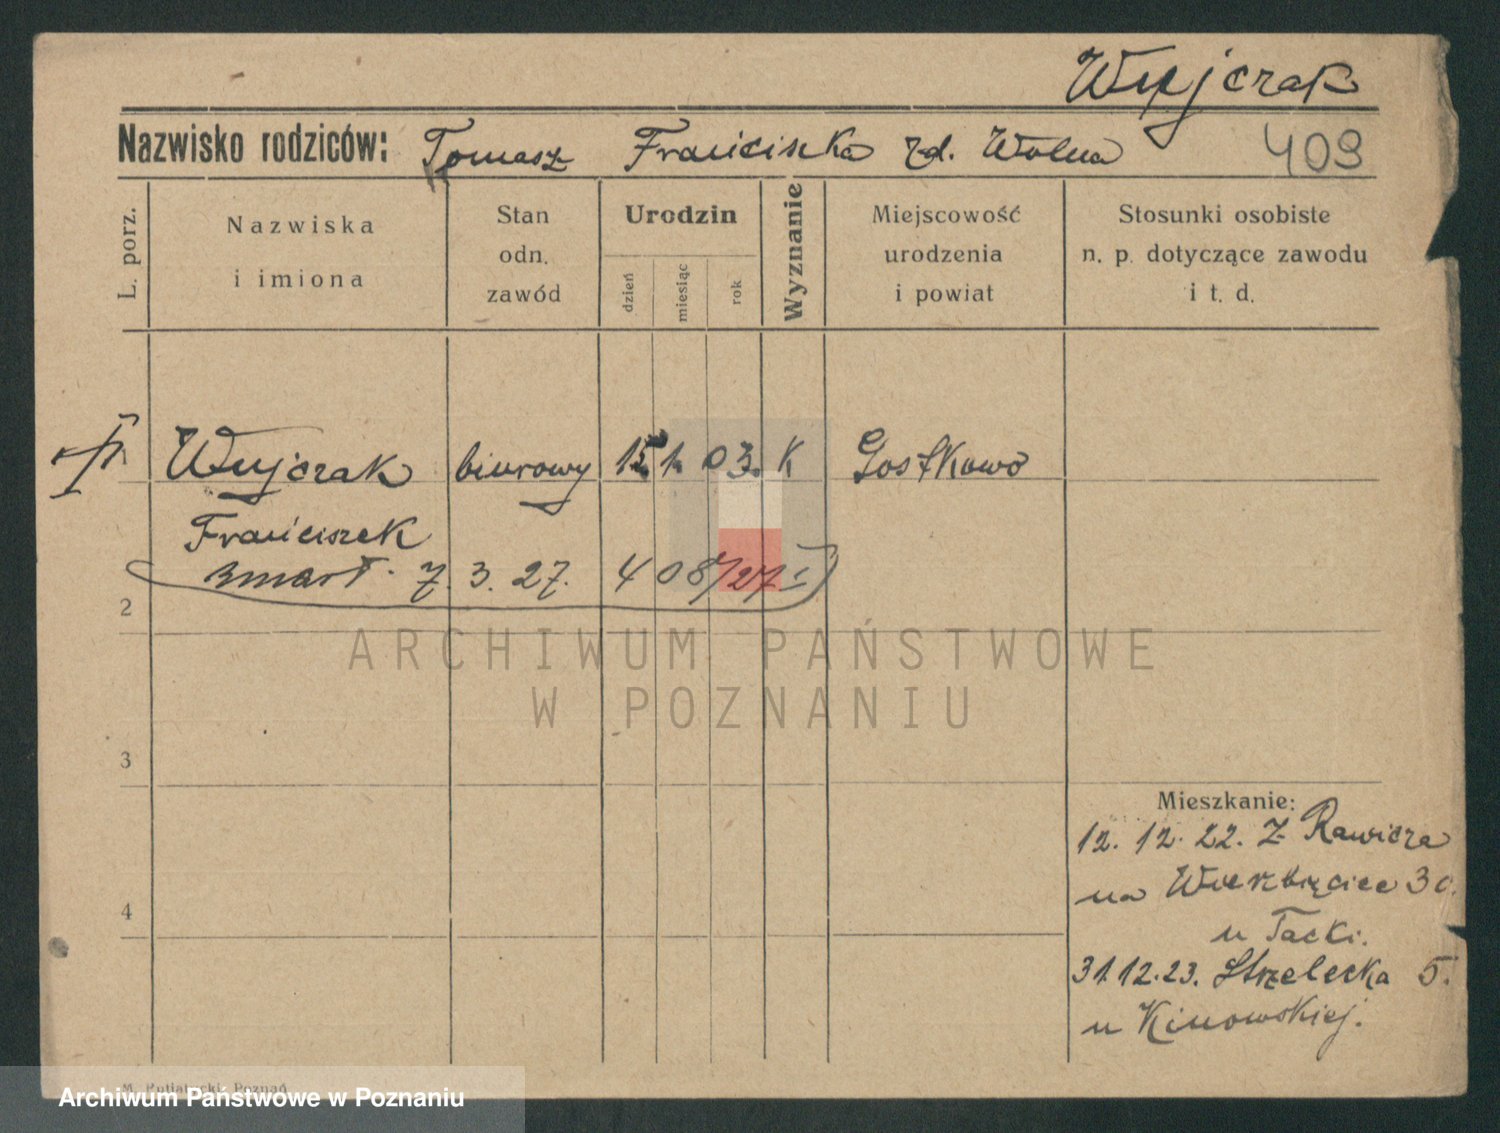 Wujczak
Nazwisko rodziców: Tomasz Franciszka zd. Wolna 409
L. porz.
Nazwiska i imiona
Stan odn. zawód
Urodzin
dzień miesiąc rok
Wyznanie
Miejscowość urodzenia i powiat
Stosunki osobiste n. p. dotyczące zawodu i t. d.
Wujczak biurowy 15. 1. 03. K Gostkowo
Franciszek
zmarł. 7. 3. 27. 408/27 I
2
3
4
Mieszkanie:
12. 12. 22. Z Rawicza
na Wierzbięcice 30.
u Tacki.
31.12.23. Strzelecka 5.
u Kinowskiej.
Poznań
ARCHIWUM PAŃSTWOWE
W POZNANIU
Archiwum Państwowe w Poznaniu